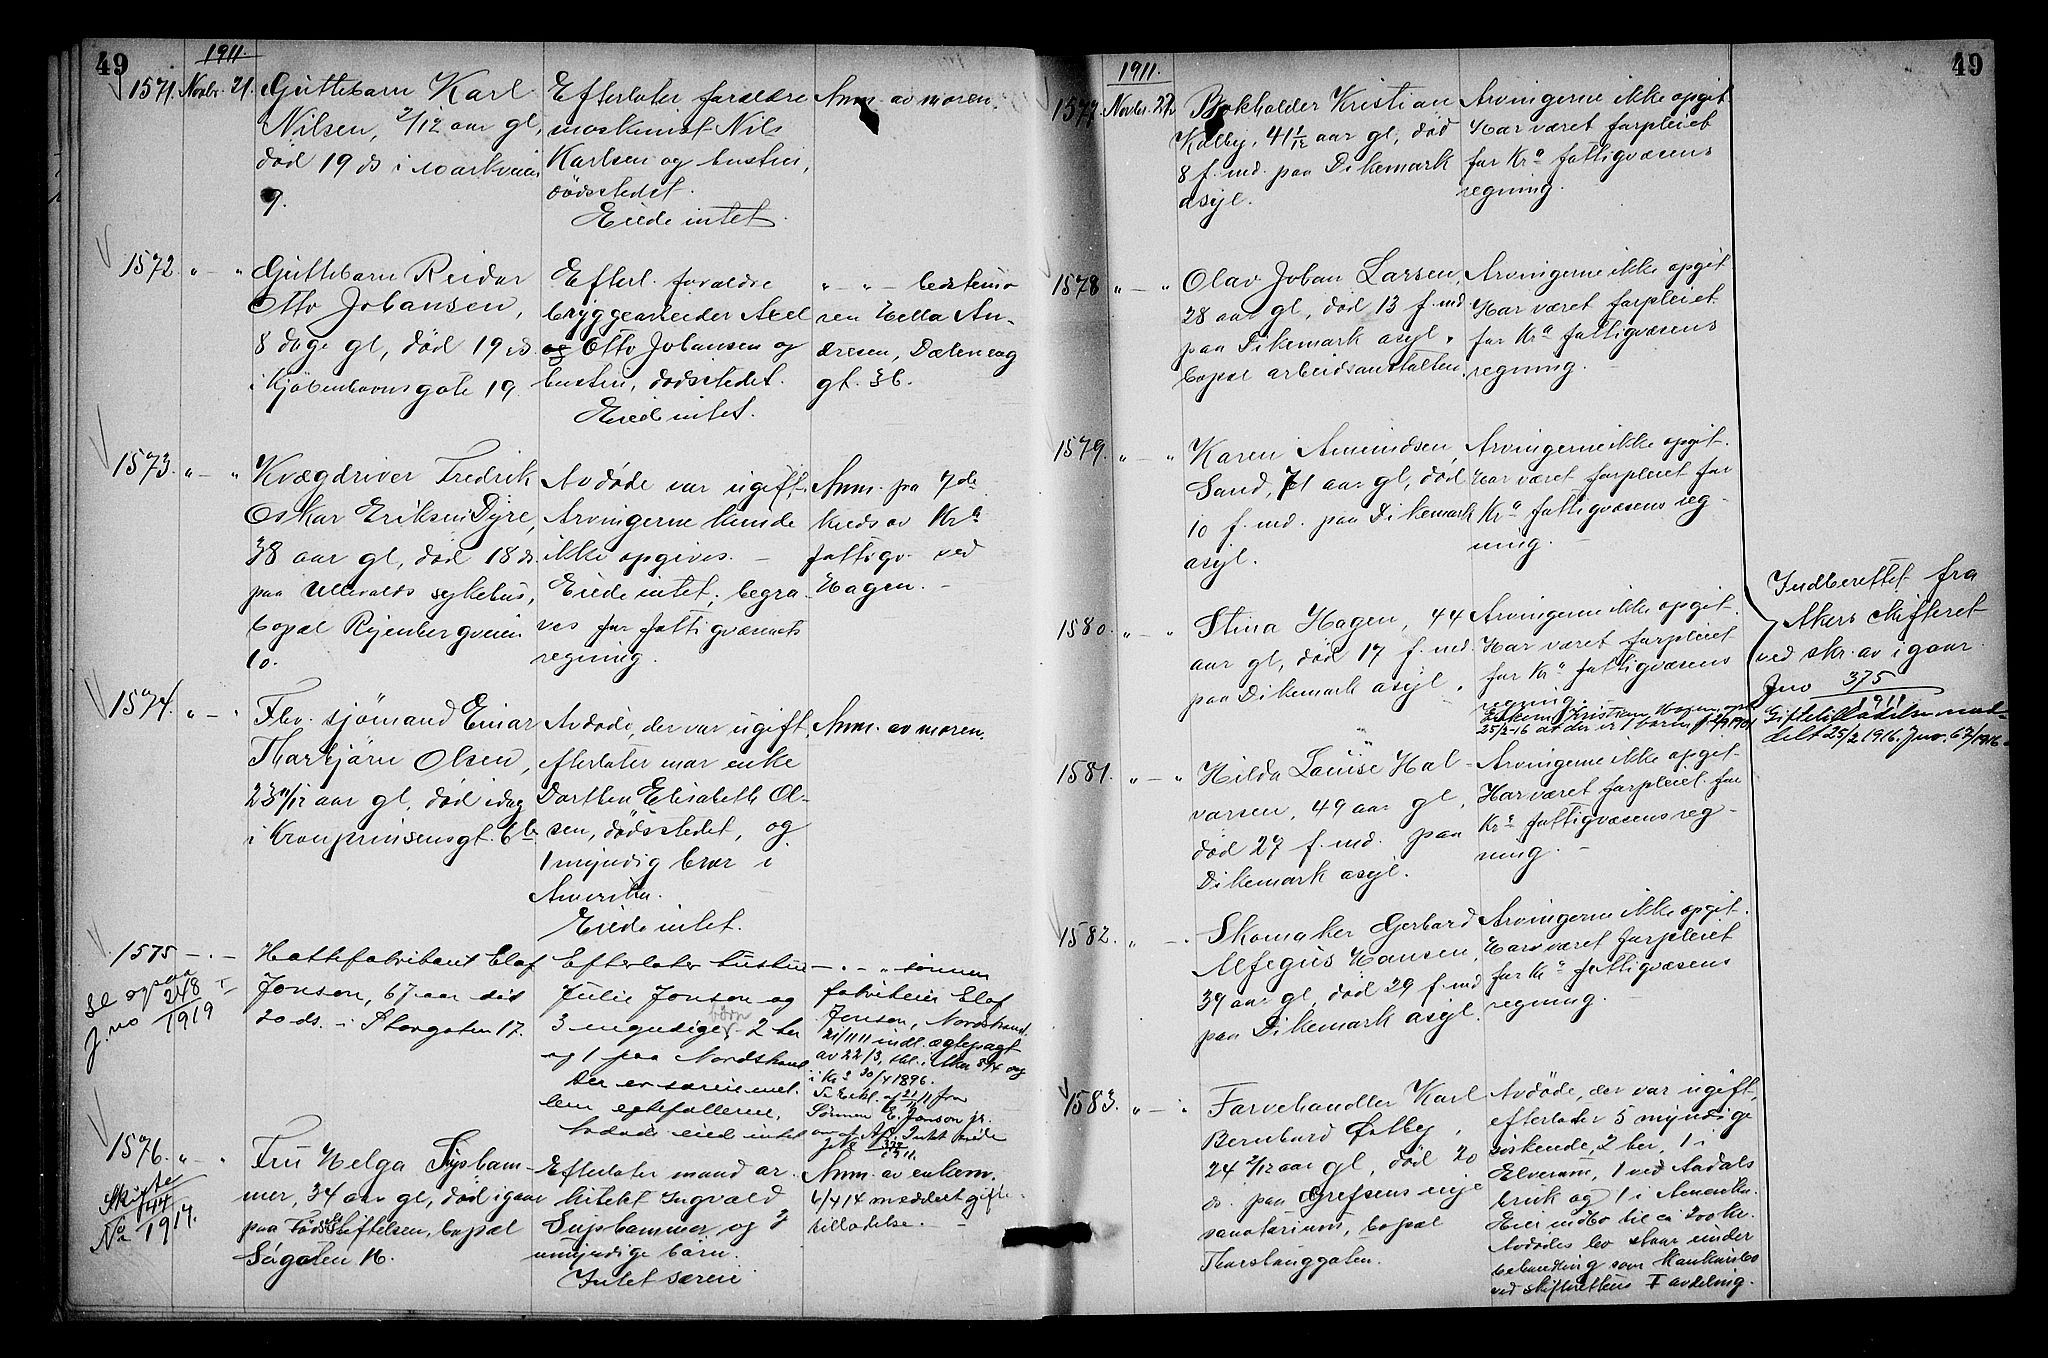 49
1911.
1571. Novbr. 21. Guttebarn Karl
Nilsen, 2/12 aar gl,
død 19 ds i Markveien
9.
Efterlater forældre
maskinist Nils
Karlsen og hustru,
dødsstedet.
Eiede intet.
Anm. av moren.
1572. " — " Guttebarn Reidar
Otto Johansen,
8 dage gl, død 19 ds
i Kjøbenhavnsgate 19.
Efterl. forældre
bryggearbeider Axel
og Otto Johansen og
hustru, dødsstedet.
Eiede intet.
" — " — bedstemo
ren Hella An-
dresen, Dæleneng
gt. 36.
1573. " — " Kvægdriver Fredrik
Oskar Eriksen Dyre,
38 aar gl, død 18 ds.
paa Ullevaals sykehus,
bopæl Ryenbergveien
10.
Avdøde var ugift.
Arvingerne kunde
ikke opgives. —
Eiede intet, begra
ves for fattigvæsenets
regning.
Anm. fra 7de
kreds av Kra
fattigv. ved
Hagen. —
1574. " — " Fhv. sjømand Einar
Thorbjørn Olsen,
23 11/12 aar gl, død idag
i Kronprinsensgt. 6b.
Avdøde, der var ugift,
efterlater mor enke
Dorthea Elisabeth Ol-
sen, dødsstedet, og
1 myndig bror i
Amerika.
Eiede intet.
Anm. av moren.
1575 — . — Hattefabrikant Elof
Jonson, 67 aar død
20 ds. i Storgaten 17.
se ogsaa
J. no 248/1919
Efterlater hustru
Julie Jonson og
3 myndige børn 2 her
og 1 paa Nordstrand
Der er særeie mel.
lem egtefællerne,
Avdøde eied intet
— . — " sønnen
fabrikeier Elof
Jonson, Nordstrand.
21/11 11 indl. ægtepagt
av 22/3, tkl. i Aker 8/4 og
i Kra 20/4 1896.
Sønnen E. Jonson jr.
1576. " — " Fru Helga Sysham-
mer, 34 aar gl, død igaar
paa Fødselsstiftelsen, bopæl
Sogaten 16.
Skifte
No 144/1914.
Efterlater mand ar
kitekt Ingvald
Syshammer og 3
umyndige børn.
Intet særeie
Anm. av enkem.
6/4 14 meddelt gifte-
tilladelse. —
49
1911.
1577. Novbr. 22. Bokholder Kristian
Kolby, 41 1/12 aar gl, død
8 f. md. paa Dikemark
asyl.
Arvingerne ikke opgit
Har været forpleiet
for Kra fattigvæsens
regning.
1578 " — " Olav Johan Larsen,
28 aar gl, død 13 f. md.
paa Dikemark asyl,
bopæl arbeidsanstalten.
Arvingerne ikke opgit
Har været forpleiet
for Kra fattigvæsens
regning. —
1579. " — " Karen Amundsen
Sand, 71 aar gl, død
10 f. md. paa Dikemark
asyl.
Arvingerne ikke opgit.
Har været forpleiet for
Kra fattigvæsens reg-
ning. —
1580. " — " Stina Hagen, 44
aar gl, død 17 f. md.
paa Dikemark asyl.
Arvingerne ikke opgit.
Har været forpleiet
for Kra fattigvæsens
regning.
Enkem. Kristian Hagen opl.
25/2-16 at der er 1 barn f. 2/9 1901
Indberettet fra
Akers skifteret
ved skr. av igaar
Jno 375/1911
Giftetilladelse med-
delt 25/2 1916. Jno. 67/1916.
1581. " — " Hilda Louise Hal-
varsen, 49 aar gl,
død 27 f. md. paa
Dikemark asyl.
Arvingerne ikke opgit
Har været forpleiet for
Kra fattigvæsens reg-
ning. —
1582. " — " Skomaker Gerhard
Alfegius Hansen,
39 aar gl, død 29 f. md
paa Dikemark asyl.
Arvingerne ikke opgit.
Har været forpleiet
for Kra fattigvæsens
regning. —
1583. " — " Farvehandler Karl
Bernhard Østby,
24 2/12 aar gl, død 20
ds. paa Grefsens nye
sanatorium, bopæl
Thorshauggaten.
Avdøde, der var ugift,
efterlader 5 myndige
søskende, 2 her, 1 i
Elverum, 1 ved Aadals
bruk og 1 i Amerika.
Eier indbo til ca 200 kr.
Avdødes bo staar under
behandling som konkursbo
ved skifterettens I avdeling.